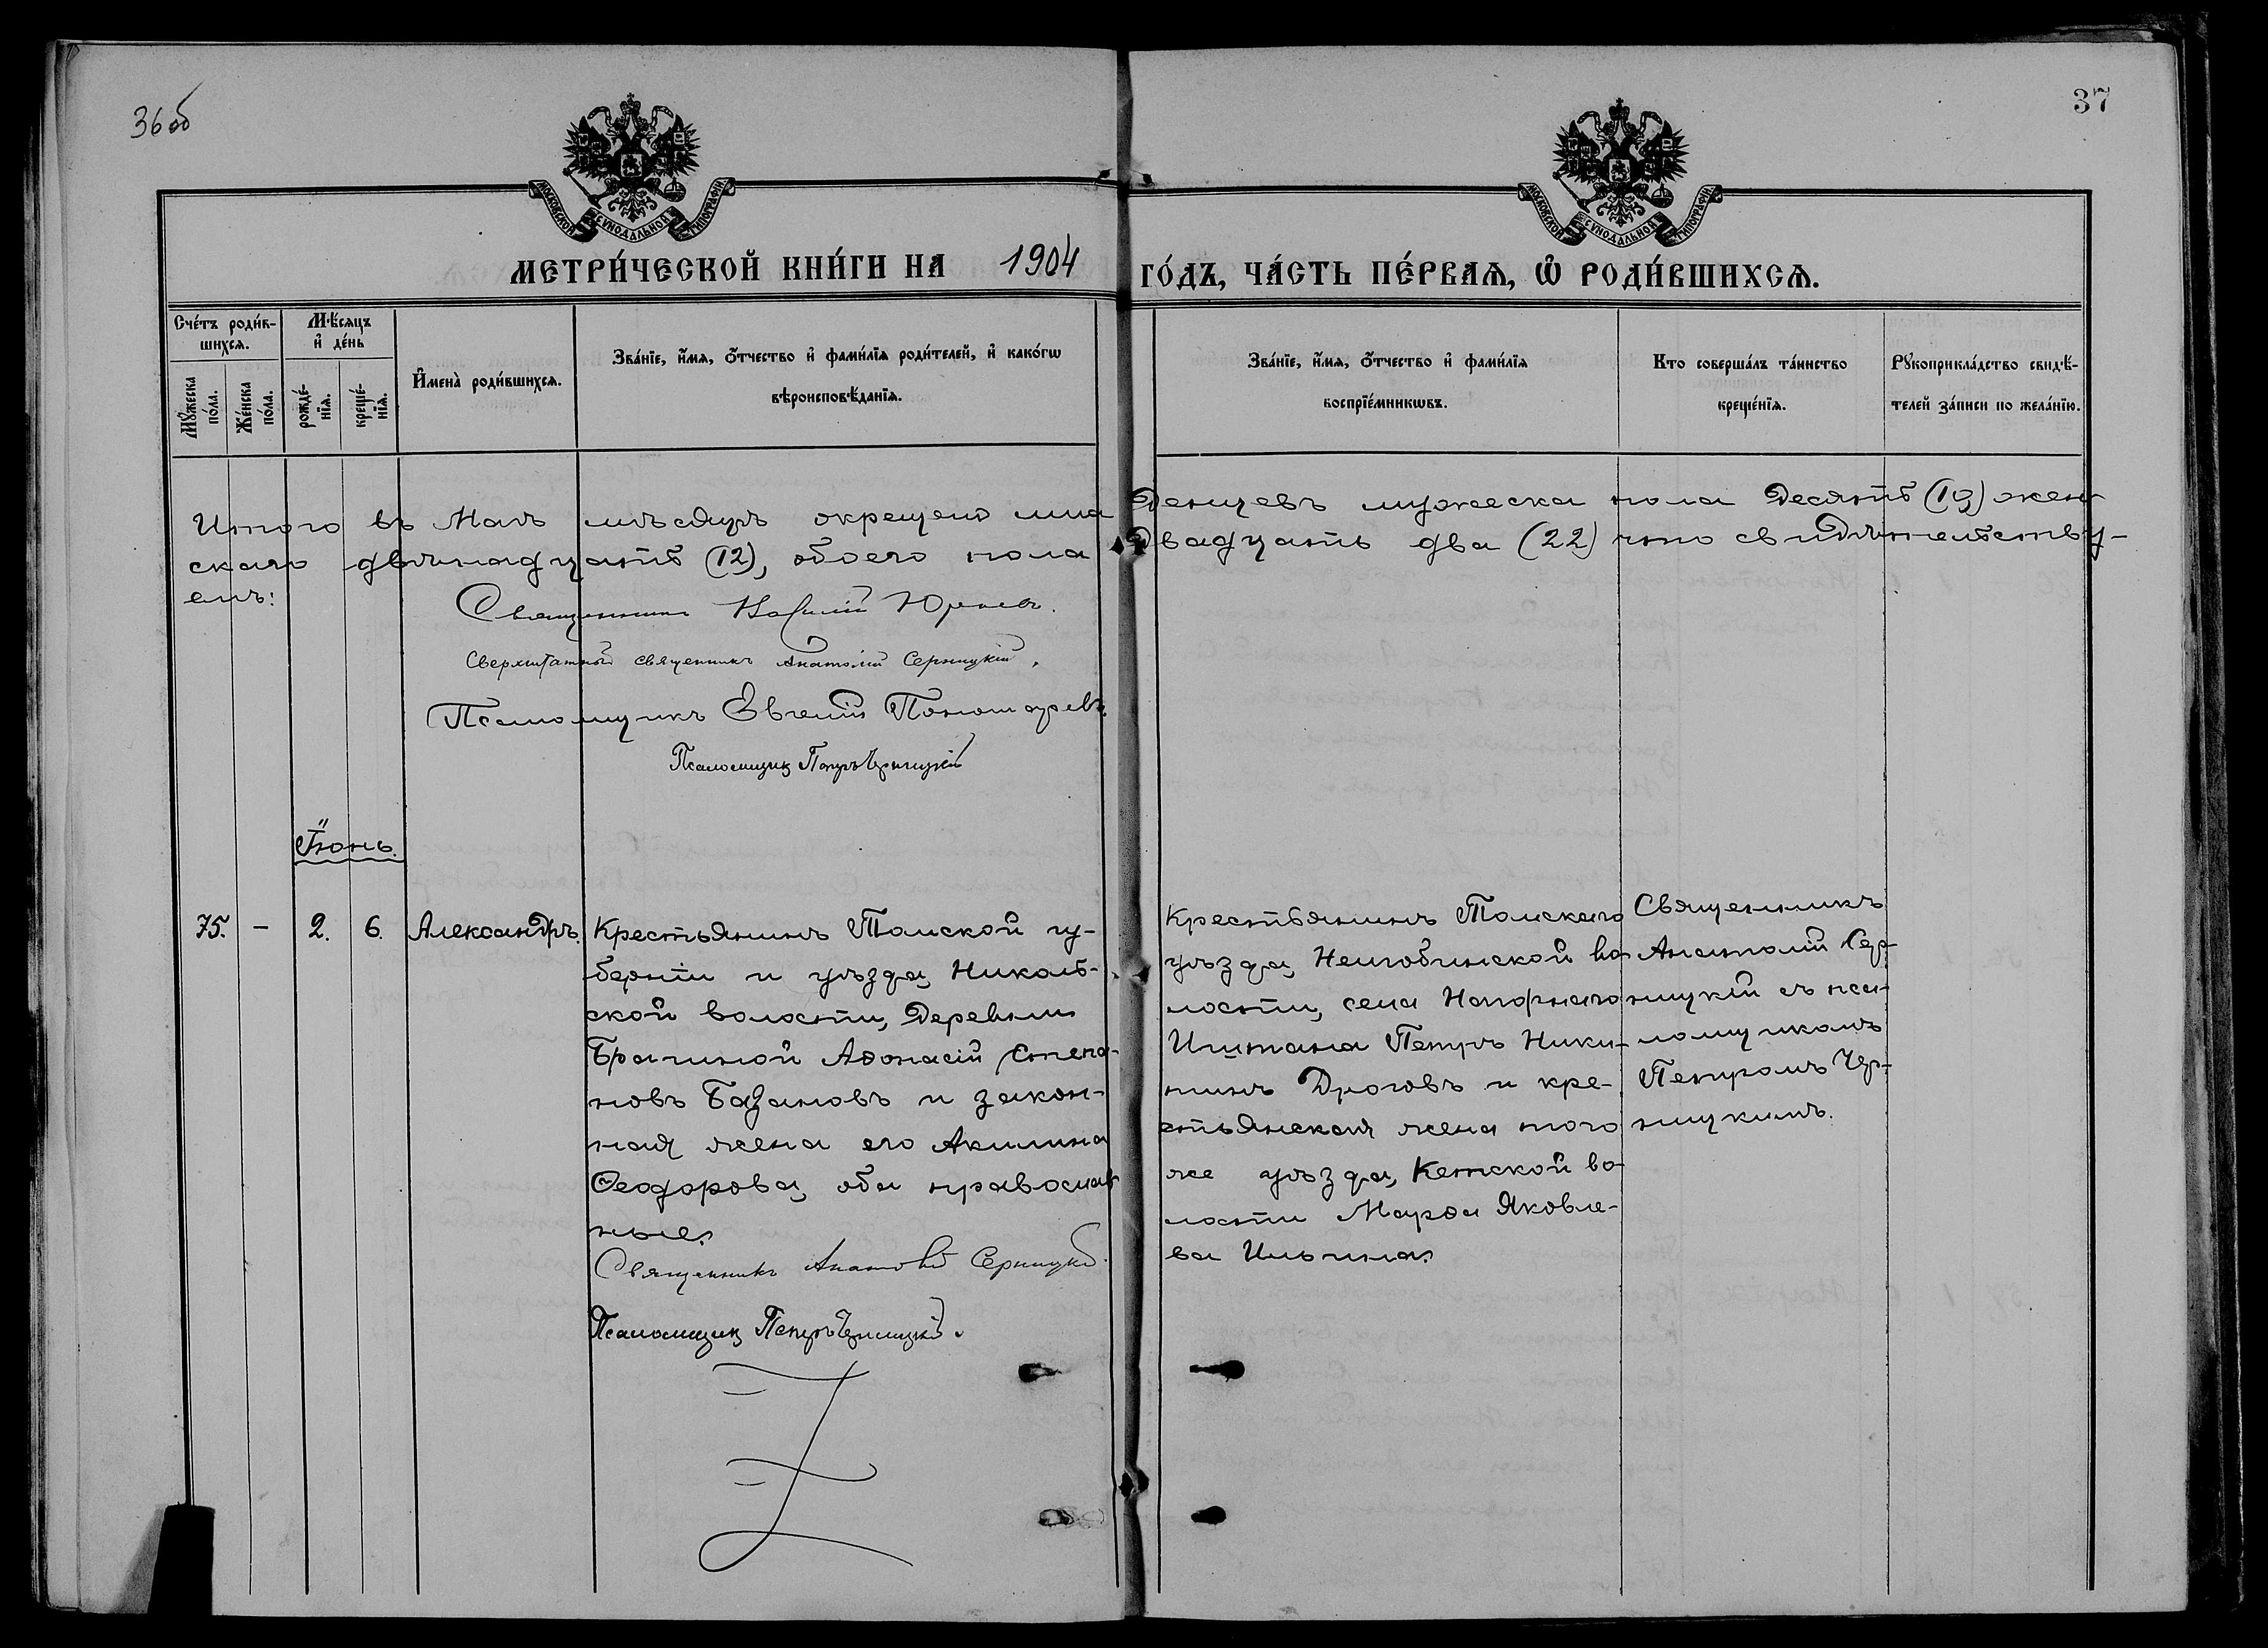 36 об
37
МОСКОВСКОЙ СѴНОДАЛЬНОЙ ТИПОГРАФІИ
МОСКОВСКОЙ СѴНОДАЛЬНОЙ ТИПОГРАФІИ
МЕТРИ́ЧЕСКОЙ КНИ́ГИ НА 1904 ГО́ДЪ, ЧА́СТЬ ПЕ́РВАѦ, Ѡ҆ РОДИ́ВШИХСѦ.
Сче́тъ роди́в-
шихсѧ.
Мꙋ́жеска
по́ла.
Же́нска
по́ла.
Мѣ́сѧцъ
и҆ де́нь
рожде́-
нїѧ.
креще́-
нїѧ.
И҆мена̀ роди́вшихсѧ.
Зва́нїе, и҆́мѧ, ѻ҆́тчество и҆ фами́лїѧ роди́телей, и҆ како́гѡ
вѣроисповѣ́данїѧ.
Зва́нїе, и҆́мѧ, ѻ҆́тчество и҆ фами́лїѧ
воспрїе́мникѡвъ.
Кто соверша́лъ та́инство
креще́нїѧ.
Рꙋкоприкла́дство свидѣ́-
телей за́писи по жела́нїю.
Итого въ Маѣ мѣсяцѣ окрещено мла денцевъ мужеска пола десять (10) жен-
скаго двѣнадцать (12), обоего пола двадцать два (22) что свидѣтельству-
емъ:
Священникъ Василій Юрьевъ.
Сверхштатный священникъ Анатолій Серницкій.
Псаломщикъ Евгеній Пономаревъ.
Псаломщикъ Петръ Черницкій
Іюнь.
75. - 2. 6. Александръ.
Крестьянинъ Томской гу-
берніи и уѣзда, Николь-
ской волости, деревни
Брагиной Аѳонасій Степа-
новъ Базановъ и закон-
ная жена его Акилина
Ѳеодорова, оба православ-
ные.
Священникъ Анатолій Серницкій.
Псаломщикъ Петръ Черницкій.
Крестьянинъ Томскаго
уѣзда, Нелюбинской во-
лости, села Нагорнаго
Иштана Петръ Ники-
тинъ Дроговъ и кре-
стьянская жена того
же уѣзда, Кетской во-
лости Марѳа Яковле-
ва Ильина.
Священникъ
Анатолій Сер-
ницкій съ пса-
ломщикомъ
Петромъ Чер-
ницкимъ.